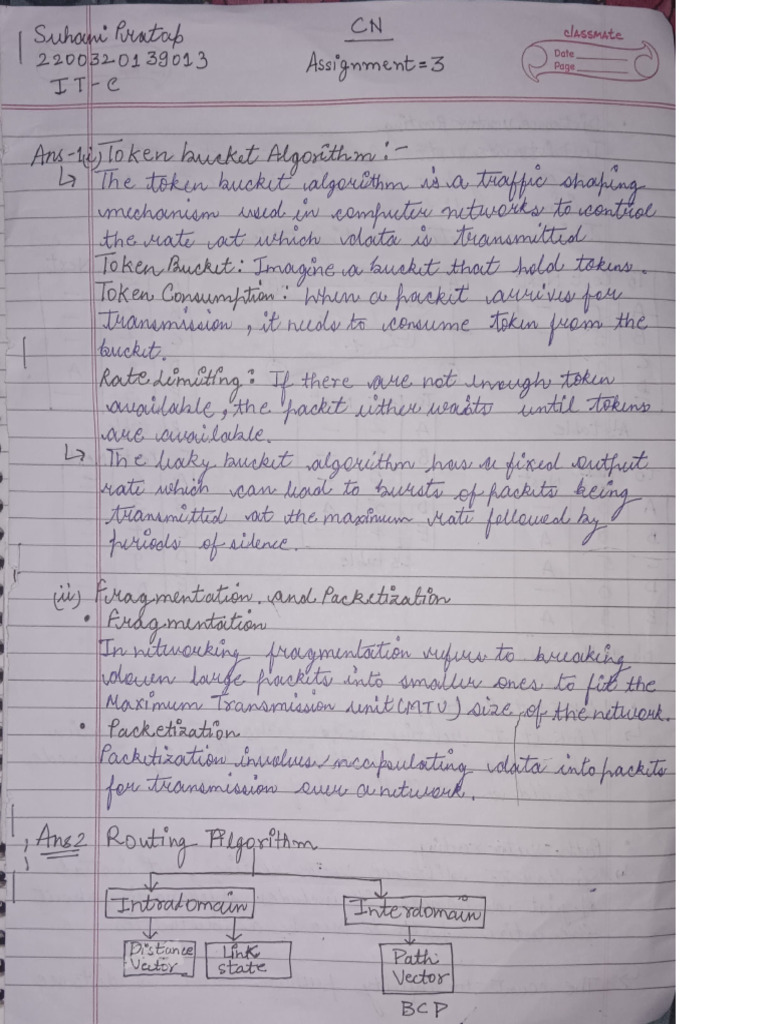 Suhani Pratap
2200320139013
IT-C
CN
Assignment=3
classmate
Date
Page
Ans-1(i) Token bucket Algorithm:-
↳ The token bucket algorithm is a traffic shaping
mechanism used in computer networks to control
the rate at which data is transmitted
Token Bucket: Imagine a bucket that hold tokens.
Token Consumption: When a packet arrives for
transmission, it needs to consume token from the
bucket.
Rate Limiting: If there are not enough token
available, the packet either waits until tokens
are available.
↳ The leaky bucket algorithm has a fixed output
rate which can lead to bursts of packets being
transmitted at the maximum rate followed by
periods of silence.
(ii) Fragmentation and Packetization
• Fragmentation
In networking fragmentation refers to breaking
down large packets into smaller ones to fit the
Maximum Transmission unit (MTU) size of the network.
• Packetization
Packetization involves encapsulating data into packets
for transmission over a network.
Ans2 Routing Algorithm
Intradomain
Interdomain
Distance Vector
Link state
Path Vector
BCP